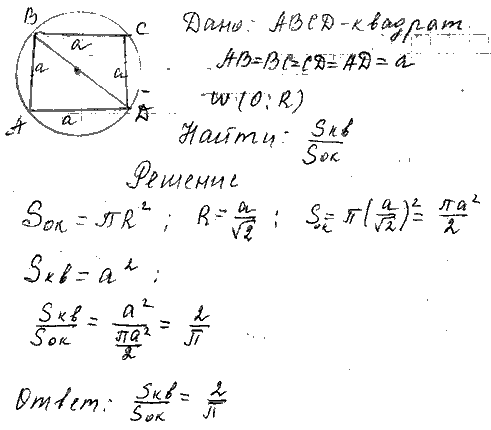 B a C
a a
A a D
Дано: ABCD-квадрат
AB=BC=CD=AD=a
w(O;R)
Найти: Sкв/Sок
Решение
Sок = πR²; R = a/√2; Sок = π(a/√2)² = πa²/2
Sкв = a²;
Sкв/Sок = a²/(πa²/2) = 2/π
Ответ: Sкв/Sок = 2/π